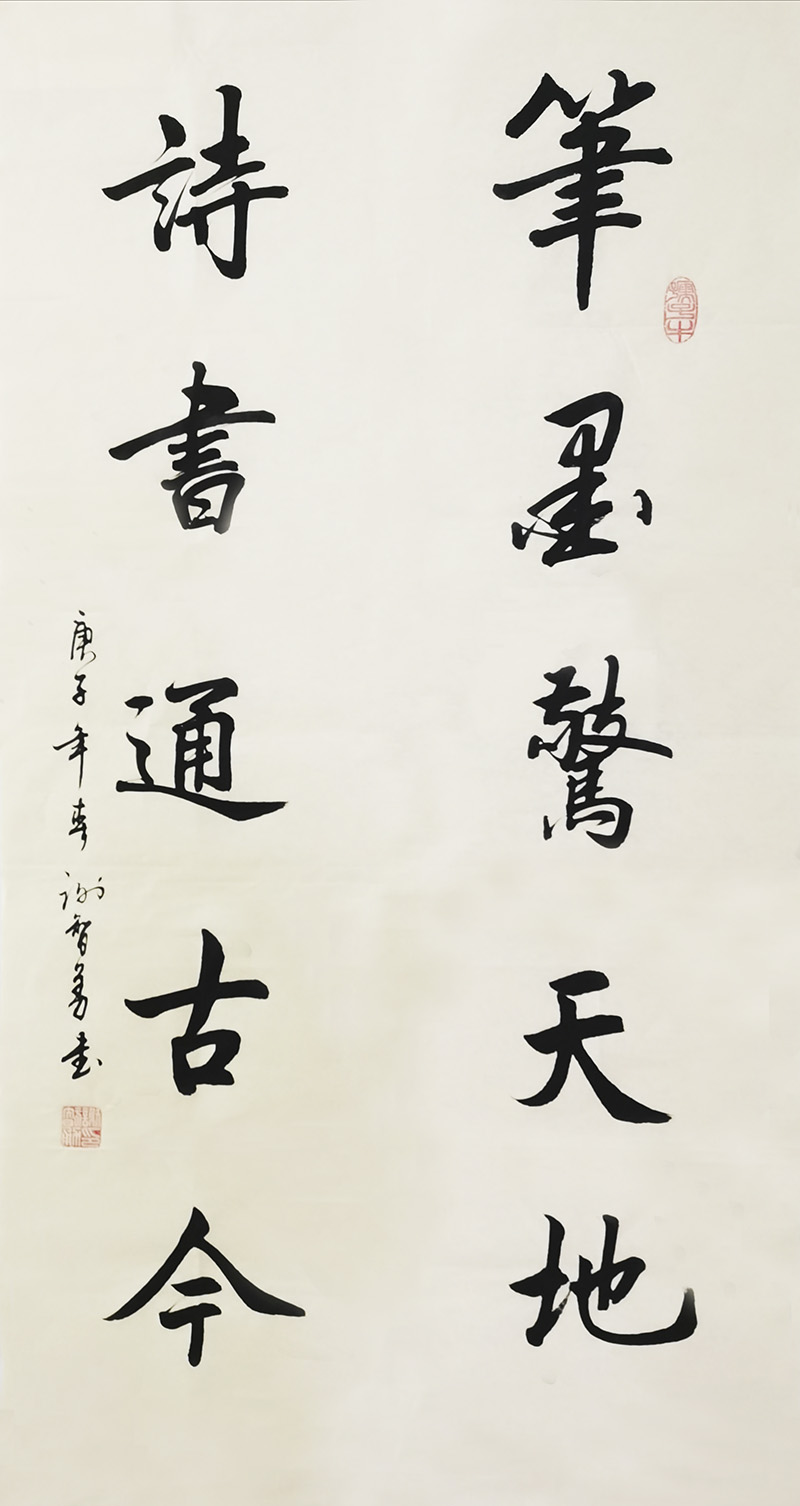 筆墨驚天地
詩書通古今
庚子年春謝智勇書